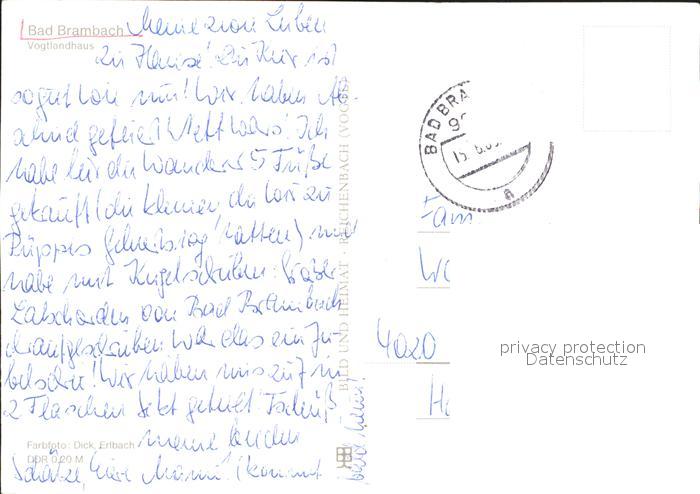 Bad Brambach
Vogtlandhaus
Meine zwei Lieben
zu Hause! Die Kur ist
so gut wie um! Wir haben
gefeiert! Nett wars! Ich
habe für die Wanderer 5 Füße
gekauft (die kleinen, die wir zu
Püppis Geburtstag hatten) und
habe mit Kugelschreiber:
Latschorden von Bad Brambach
draufgeschrieben. War das ein Ju-
belschrei! Wir haben uns zu
2 Flaschen Sekt geteilt. Tschüß
meine beiden
Schätze, Eure Mami! (kommt
bald heim!
Farbfoto: Dick, Erlbach
DDR 0,20 M
BILD UND HEIMAT · REICHENBACH (VOGTL)
BAD BRA
Fam
4020
privacy protection
Datenschutz